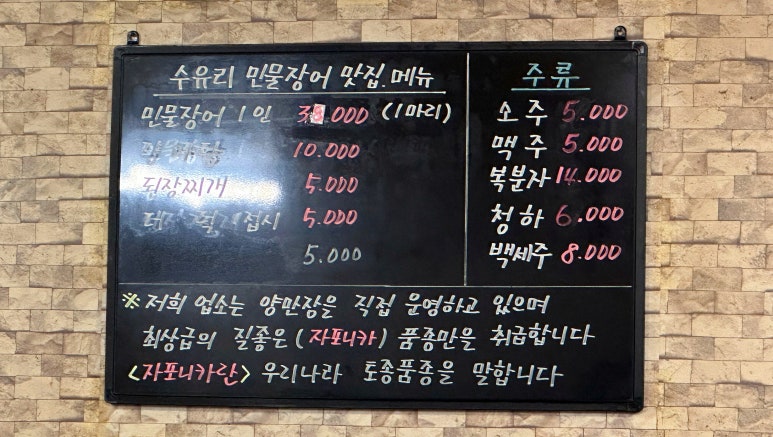 수유리 민물장어 맛집.메뉴
민물장어 1인 38.000 (1마리)
10.000
된장찌개 5.000
접시 5.000
5.000
주류
소주 5.000
맥주 5.000
복분자 14.000
청하 6.000
백세주 8.000
※ 저희 업소는 양만장을 직접 운영하고 있으며
최상급의 질좋은 (자포니카) 품종만을 취급합니다
<자포니카란> 우리나라 토종품종을 말합니다